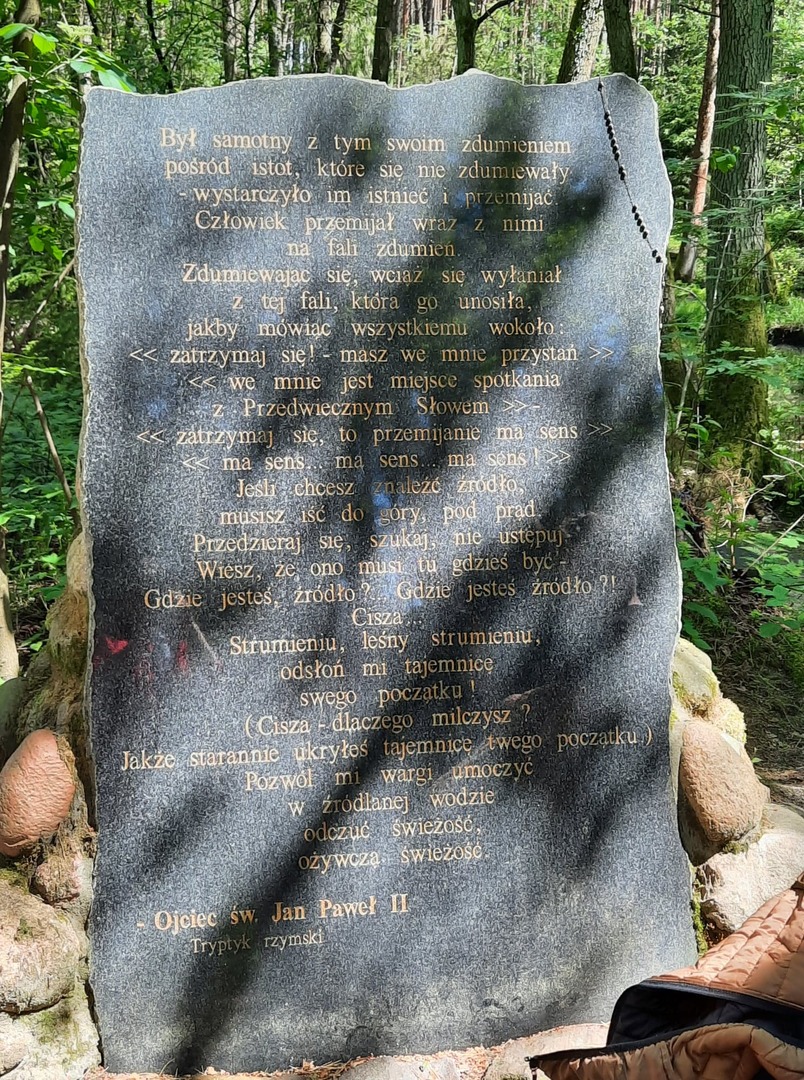 Był samotny z tym swoim zdumieniem
pośród istot, które się nie zdumiewały
- wystarczyło im istnieć i przemijać.
Człowiek przemijał wraz z nimi
na fali zdumień.
Zdumiewając się, wciąż się wyłaniał
z tej fali, która go unosiła,
jakby mówiąc wszystkiemu wokoło:
<< zatrzymaj się! - masz we mnie przystań >>
<< we mnie jest miejsce spotkania
z Przedwiecznym Słowem >> -
<< zatrzymaj się, to przemijanie ma sens >>
<< ma sens... ma sens... ma sens! >>
Jeśli chcesz znaleźć źródło,
musisz iść do góry, pod prąd.
Przedzieraj się, szukaj, nie ustępuj
Wiesz, że ono musi tu gdzieś być -
Gdzie jesteś, źródło?... Gdzie jesteś źródło?!
Cisza...
Strumieniu, leśny strumieniu,
odsłoń mi tajemnicę
swego początku!
(Cisza - dlaczego milczysz?
Jakże starannie ukryłeś tajemnicę twego początku.)
Pozwól mi wargi umoczyć
w źródlanej wodzie
odczuć świeżość,
ożywczą świeżość.
- Ojciec św. Jan Paweł II
Tryptyk rzymski